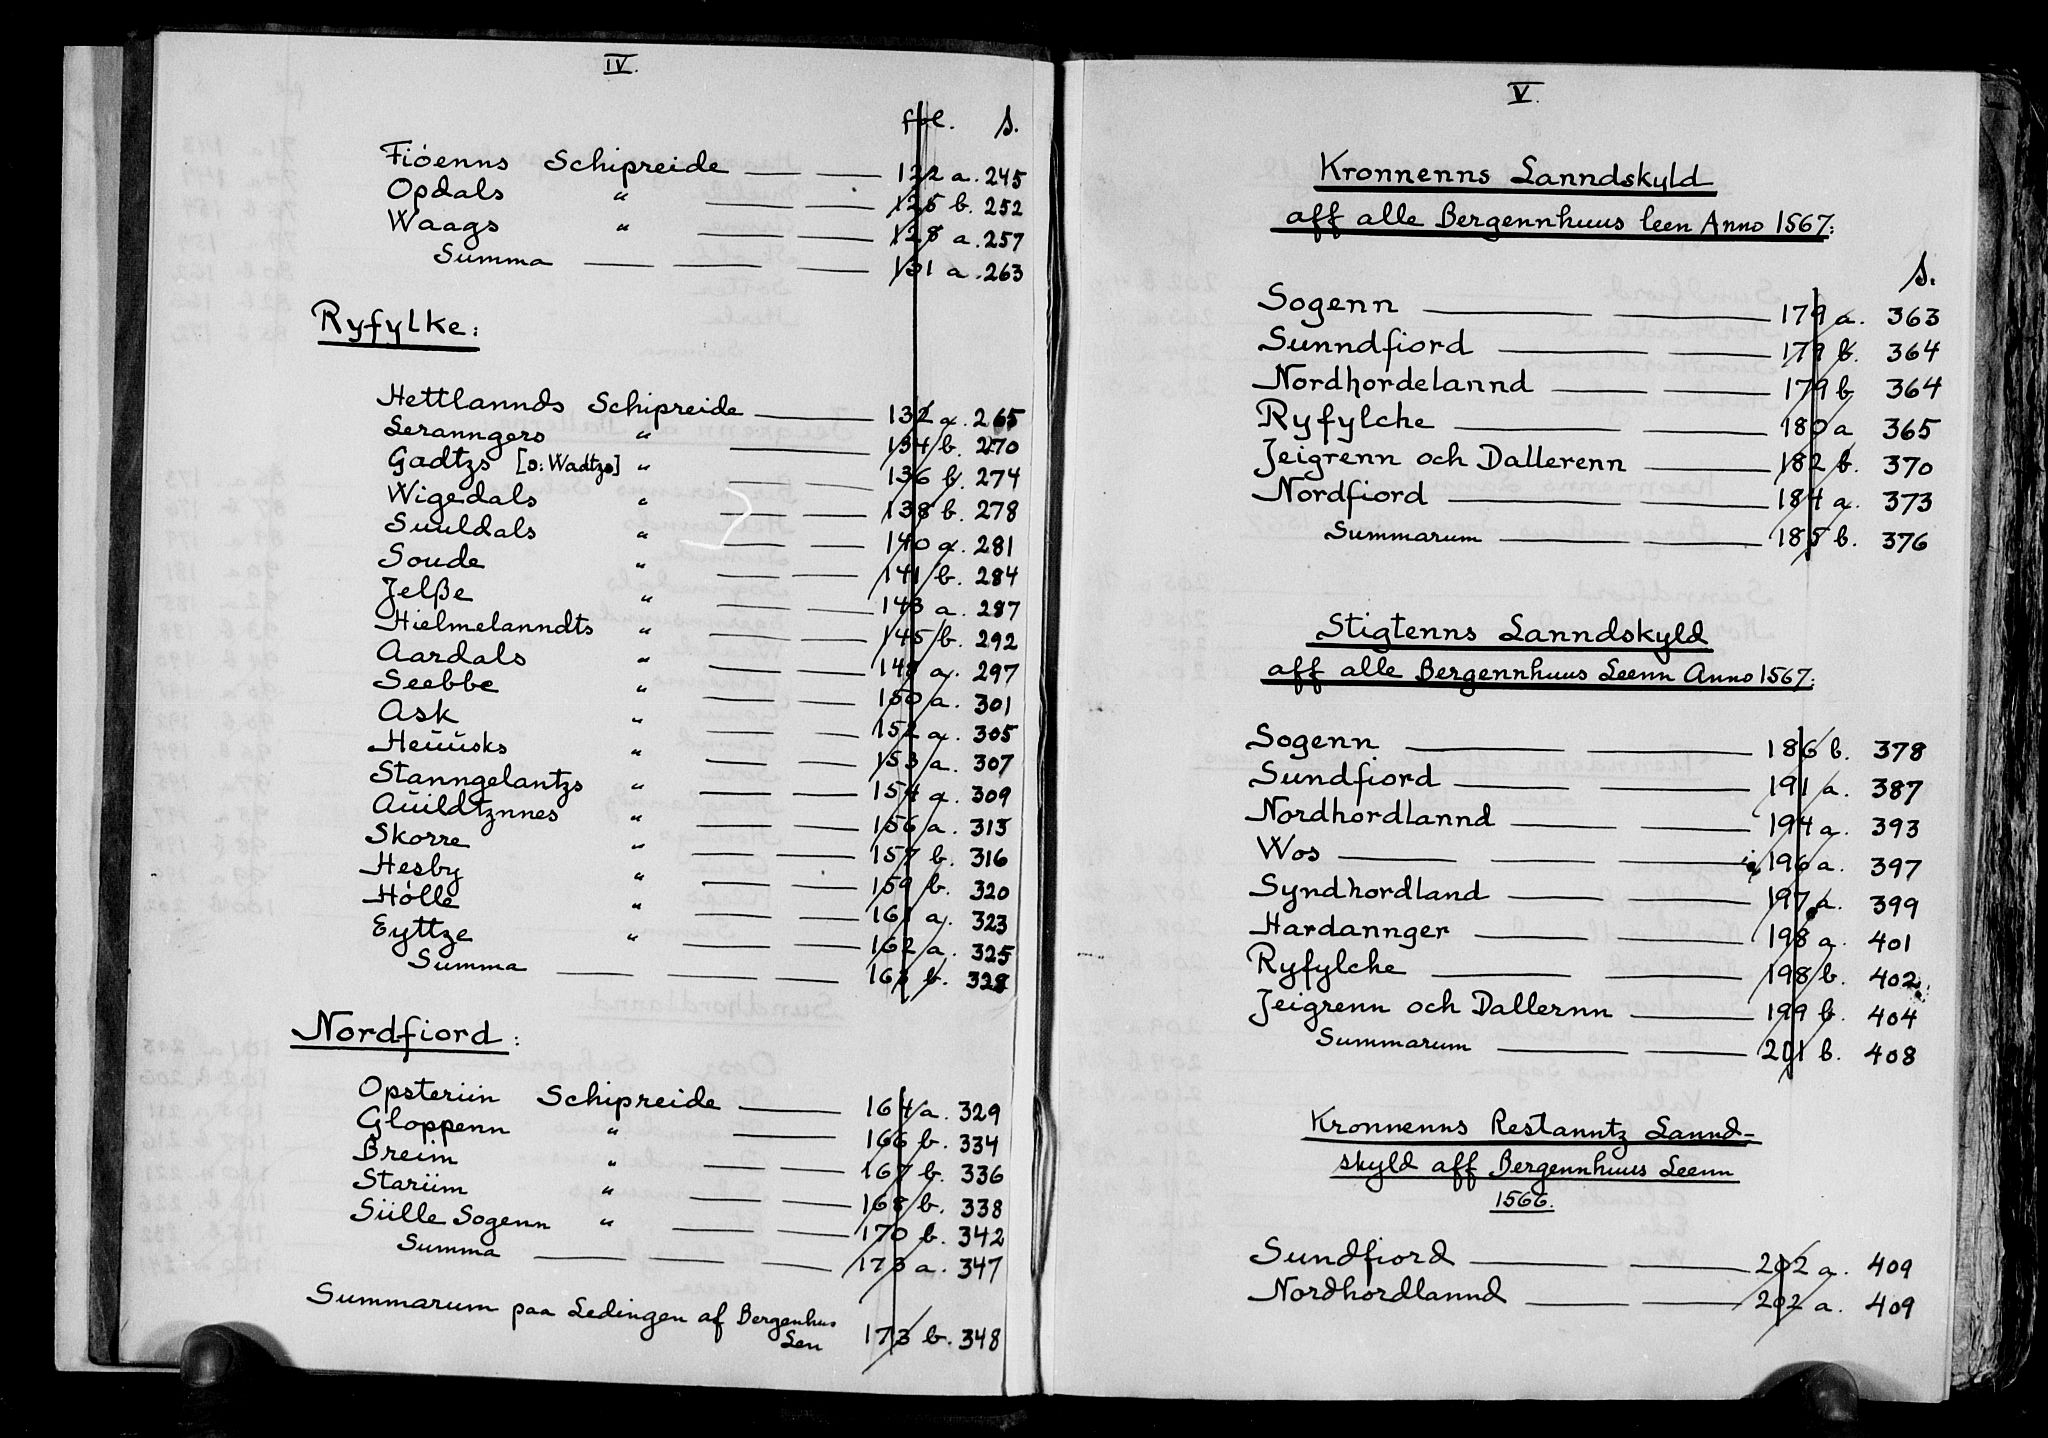 IV.
fol. s.
Fióenns Schipreide — — 122 a. 245
Opdals " — — 125 b. 252
Waags " — — 128 a. 257
Summa — — — 131 a. 263
Ryfylke:
Hettlannds Schipreide — 132 a. 265
Leranngers " — 134 b. 270
Gadtzs [ɔ: Wadtzs] " — — 136 b. 274
Wigedals " — — 138 b. 278
Suuldals " — — 140 a. 281
Soude " — — 141 b. 284
Jelße " — — 143 a. 287
Hielmelanndts " — — 145 b. 292
Aardals " — — 148 a. 297
Seebbe " — — 150 a. 301
Ask " — — 152 a. 305
Heŭŭsks " — — 153 a. 307
Stanngelantzs " — — 154 a. 309
Aŭildtznnes " — — 156 a. 313
Skorre " — — 157 b. 316
Hesby " — — 159 b. 320
Hólle " — — 161 a. 323
Eyttze " — — 162 a. 325
Summa — — — 163 b. 328
Nordfiord:
Opsteriin Schipreide — 164 a. 329
Gloppenn " — 166 b. 334
Breim " — — 167 b. 336
Stariim " — — 168 b. 338
Siille Sogenn " — — 170 b. 342
Summa — — — 173 a. 347
Summarum paa Ledingen af Bergenhus
Len 173 b. 348
V.
Kronnenns Lanndskyld
aff alle Bergennhuus leen Anno 1567:
s.
Sogenn — — 179 a. 363
Sunndfiord — — 179 b. 364
Nordhordelannd — — 179 b 364
Ryfylche — — 180 a 365
Jeigrenn och Dallerenn — 182 b. 370
Nordfiord — — 184 a. 373
Summarum — — 185 b. 376
Stigtenns Lanndskyld
aff alle Bergennhuus Leenn Anno 1567:
Sogenn — — 186 b. 378
Sundfiord — — 191 a. 387
Nordhordlannd — — 194 a. 393
Wos — — — 196 a. 397
Syndhordland — — 197 a. 399
Hardannger — — 198 a. 401
Ryfylche — — 198 b. 402
Jeigrenn och Dallernn — 199 b. 404
Summarum — — 201 b. 408
Kronnenns Restanntz Lannd-
skyld aff Bergennhuus Leenn
1566.
Sundfiord — — 202 a. 409
Nordhordlannd — — 202 a. 409